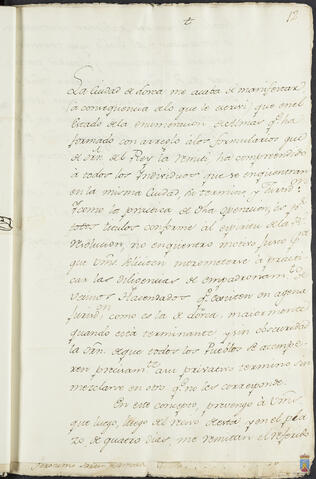 12
La Ciudad de Lorca me acaba de manifestar,
la consequencia de lo que le escrivi, que en el
Estado de la enumeracion de Almas qe. ha
formado con arreglo a los formularios que
de Orn. del Rey la remiti, ha comprendido
à todos los Individuos, que se enquentran
en la misma Ciudad, su termino, y Jurisdn.
Y como la practica de dha operacion, es por
todos titulos conforme al espiritu de la Rl.
Resolucion, no enquentro motivo para
que Vms. soliciten intrometerse à practi-
car las diligencias de empadronamto. de
Vecinos Hacendados qe. existen en agena
Jurisdn. como es la de Lorca, maiormente
quando està terminante y sin obscuridad
la Orn. de que todos los Pueblos se
precisamte. a su privativo termino sin
mezclarse en otro, qe. no les corresponde.
En este concepto, prevengo à Vms.
que luego, luego del recivo de esta, y en el pla-
zo de quatro dias, me remitan el referido